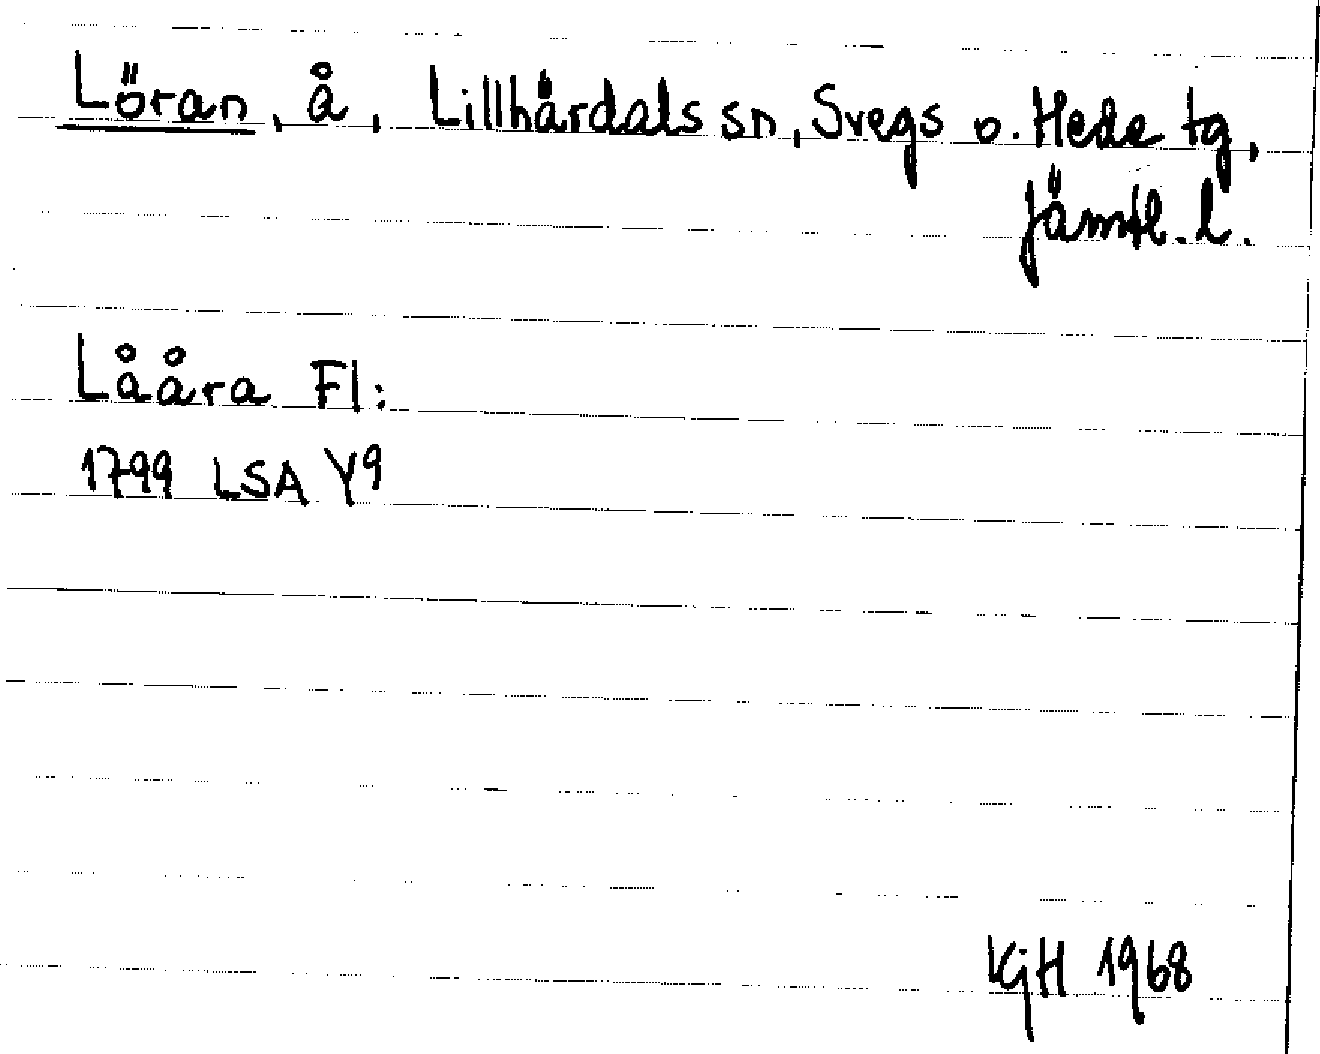 Löran, å, Lillhårdals sn, Svegs o. Hede tg,
Jämtl. l.
Lååra Fl:
1799 LSA Y9
KGH 1968